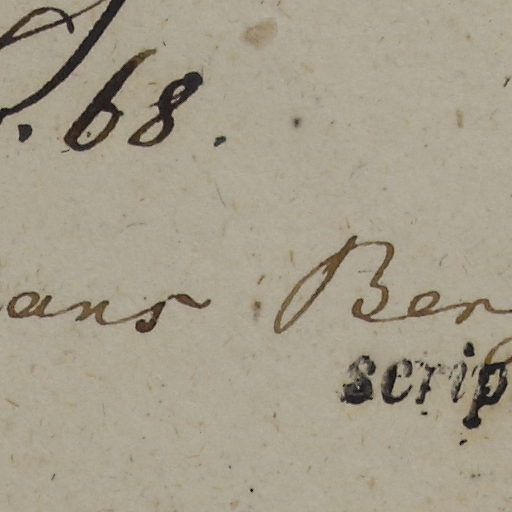 . 68.
ans Ber
scrip